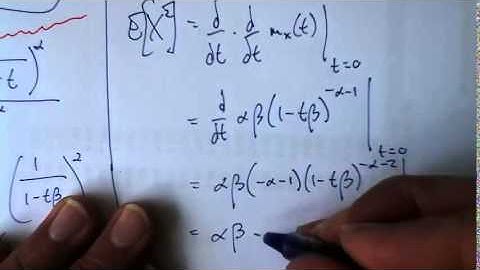 E[X²] = d/dt · d/dt mₓ(t) |t=0
= d/dt αβ(1-tβ)^(-α-1) |t=0
= αβ(-α-1)(1-tβ)^(-α-2) |
= αβ -
-t)^α
(1/(1-tβ))²